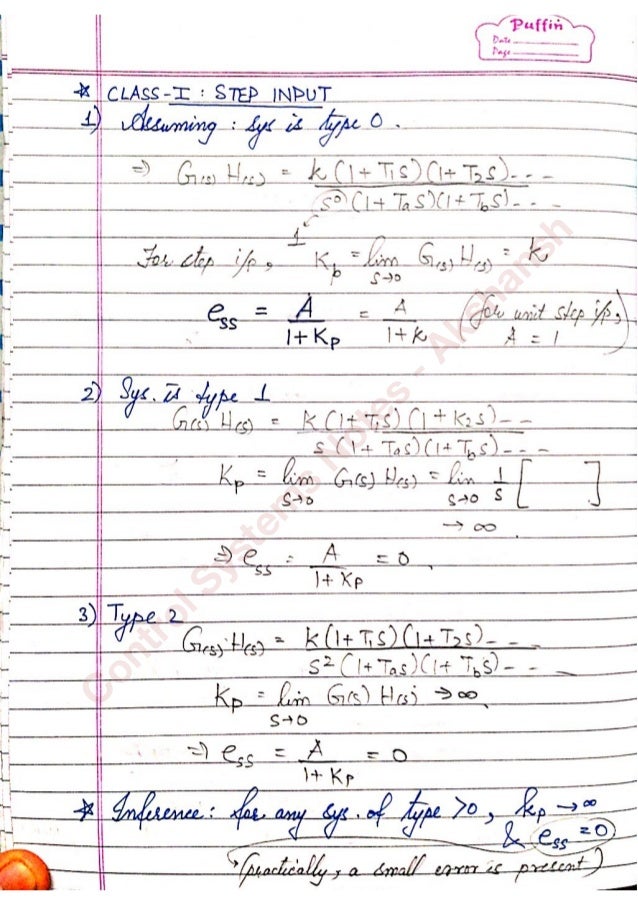 Puffin
Date
Page
* CLASS-I : STEP INPUT
1) Assuming : sys is type 0.
⇒ G(s) H(s) = k (1 + T1s) (1 + T2s) - - -
s^0 (1 + Tas) (1 + Tbs) - - -
1
For step i/p, Kp = lim G(s) H(s) = k
s→0
ess = A = A (for unit step i/p,
1 + Kp 1 + k A = 1)
2) Sys. is type 1
G(s) H(s) = K (1 + T1s) (1 + K2s) - - -
s (1 + Tas) (1 + Tbs) - - -
Kp = lim G(s) H(s) = lim 1 [ ]
s→0 s→0 s
→ ∞
⇒ ess = A = 0.
1 + Kp
3) Type 2
G(s) H(s) = k (1 + T1s) (1 + T2s) - - -
s² (1 + Tas) (1 + Tbs) - - -
Kp = lim G(s) H(s) → ∞
s→0
⇒ ess = A = 0
1 + Kp
* Inference : for any sys. of type >0, kp → ∞
& ess = 0
(practically, a small error is present)
Control Systems Notes - Akshansh